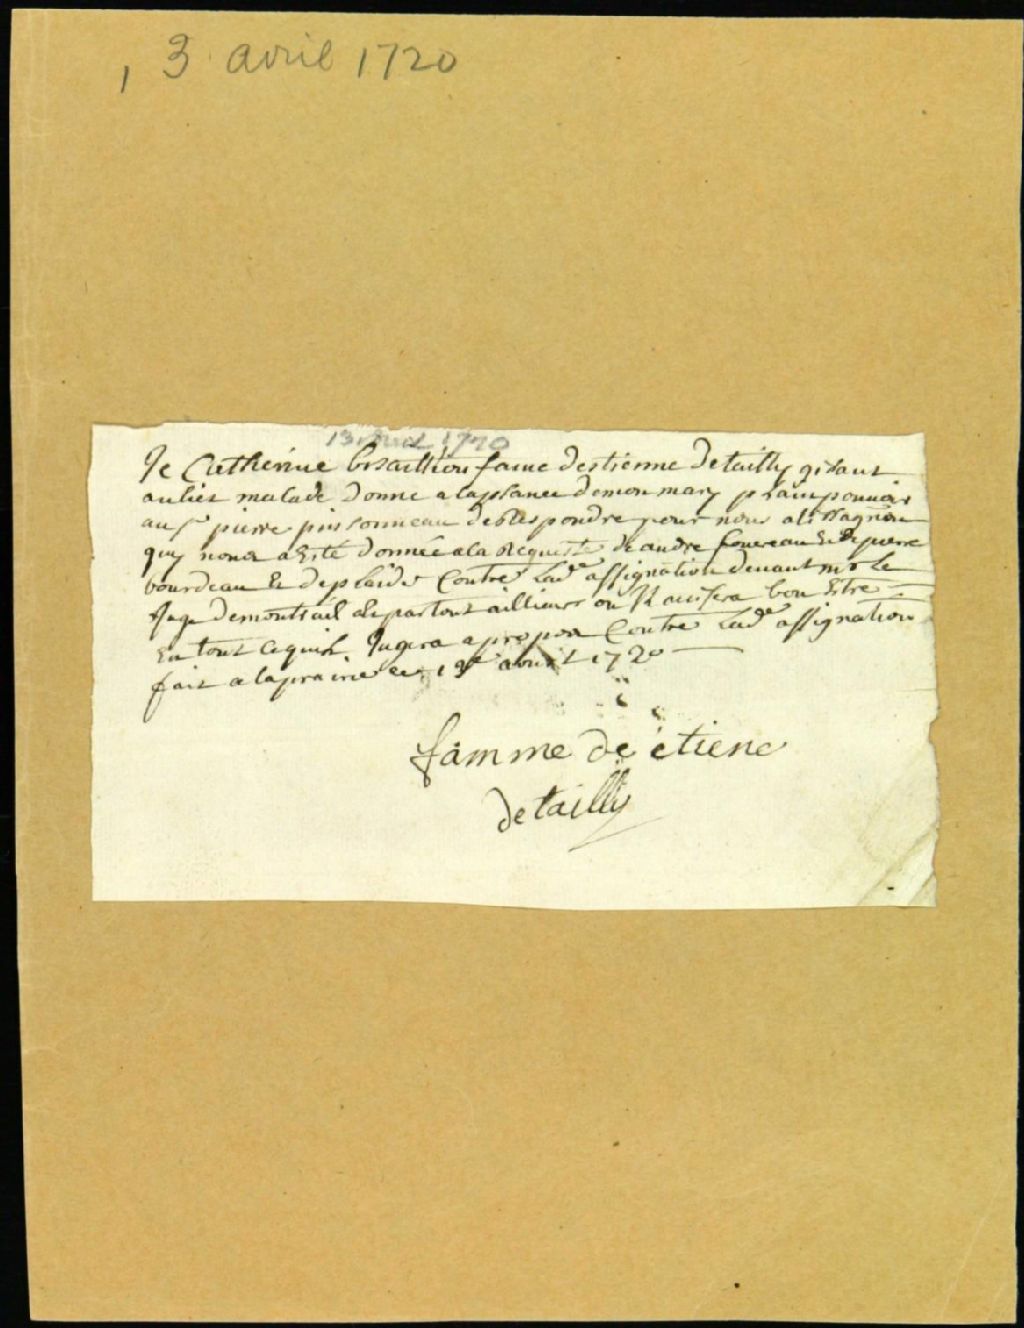 13 avril 1720
13 avril 1720
Je Catherine bisaillion fame destienne detailly gisant
au liet malade donne a laplance demon mary plain pouvoir
au sr pierre pinsonneau de Respondre pour nous a l'assagnation
quy nous a Esté donnée a la Requeste de andre foucreau Et de pierre
bourdeau Et de plaider Contre Lade assignation devant mr le
Juge demontreail Et partout aillieurs ou Il avisera bon Estre
En tout ce quil Jugera a propos Contre Lade assignation
fait a laprairie ce 13e avril 1720
famme de etiene
detailly